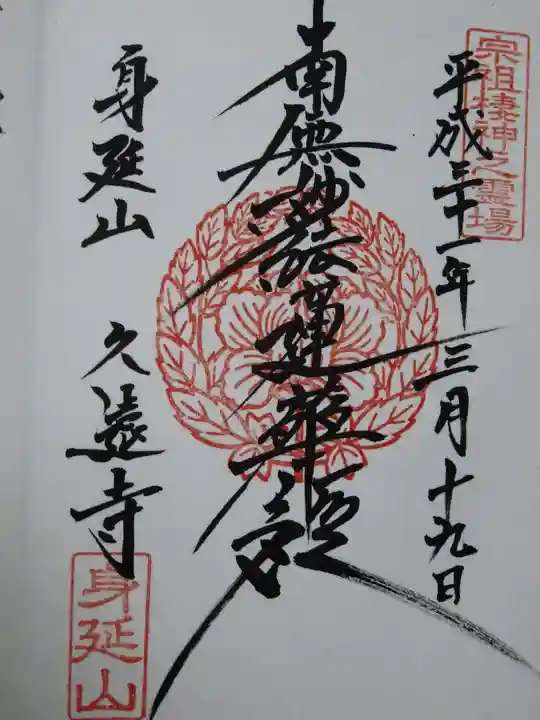 宗祖棲神之霊場
平成三十一年三月十九日
南無妙法蓮華経
身延山 久遠寺
身延山